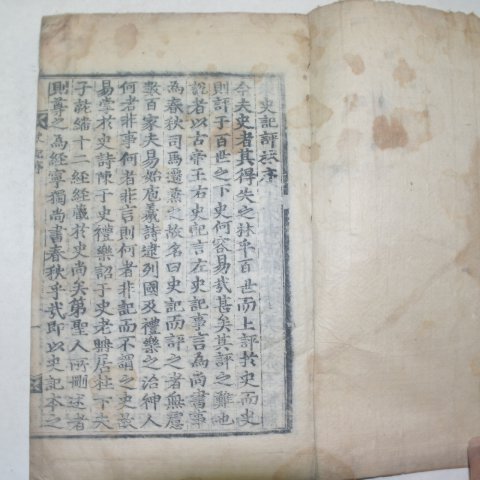 史記評林序
今夫史者其得失之林乎百世而上評於史而史
則評于百世之下史何容易哉甚矣其評之難也
說者以古帝王右史記言左史記事言為尚書事
為春秋司馬遷兼之故名曰史記而評之者無慮
數百家夫易始庖羲詩逮列國及禮樂之治神人
何者非事何者非言則何者非記而不謂之史故
易掌於史詩陳于史禮樂詔于史老聃居柱下夫
子繙十二經經藏於史尚矣第聖人所刪述者
則尊之為經寧獨尚書春秋乎哉即以史記本之